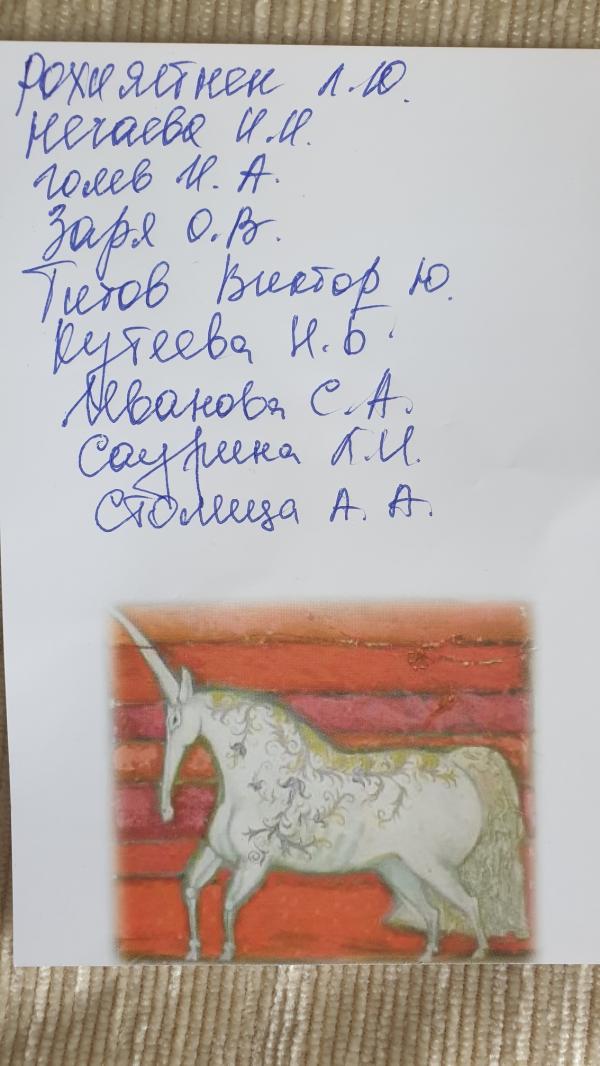 Рохиястнен Л.Ю.
Нечаева И.И.
Голев И. А.
Заря О.В.
Титов Виктор Ю.
Кутеева Н.Б.
Иванова С.А.
Саурина Г.И.
Столица А. А.